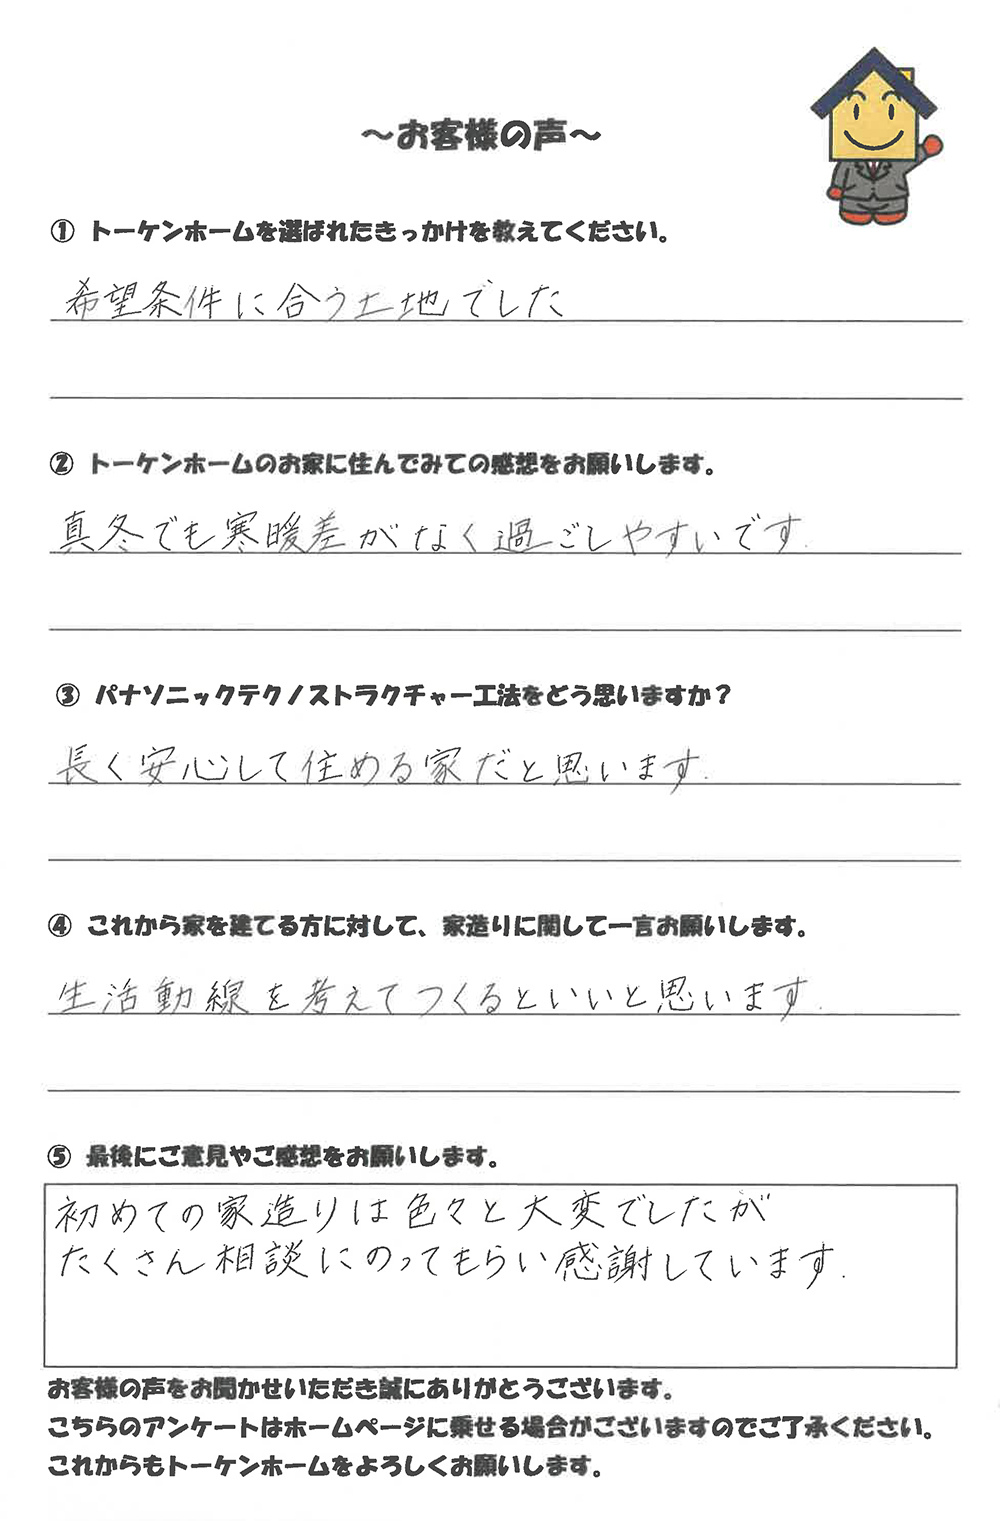 ～お客様の声～
① トーケンホームを選ばれたきっかけを教えてください。
希望条件に合う土地でした
② トーケンホームのお家に住んでみての感想をお願いします。
真冬でも寒暖差がなく過ごしやすいです.
③ パナソニックテクノストラクチャー工法をどう思いますか？
長く安心して住める家だと思います.
④ これから家を建てる方に対して、家造りに関して一言お願いします。
生活動線を考えてつくるといいと思います.
⑤ 最後にご意見やご感想をお願いします。
初めての家造りは色々と大変でしたが
たくさん相談にのってもらい感謝しています.
お客様の声をお聞かせいただき誠にありがとうございます。
こちらのアンケートはホームページに乗せる場合がございますのでご了承ください。
これからもトーケンホームをよろしくお願いします。